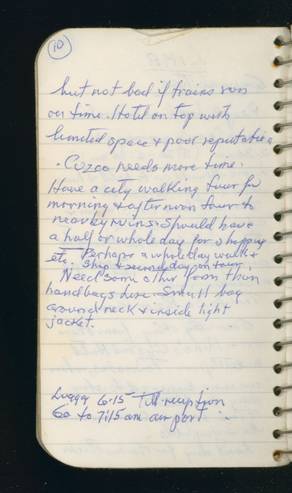 10
but not bad if trains run
on time. Hotel on top with
limited space & poor reputation
. Cuzco needs more time.
Have a city walking tour for
morning & afternoon tour to
nearby ruins. Should have
a half or whole day for shopping
etc. Perhaps a whole day walk &
shop & second day on tour.
Need some other than
handbags here. Small bag
around neck & inside light
jacket.
Luggage 6:15 Till reception
Go to 7:15 am airport